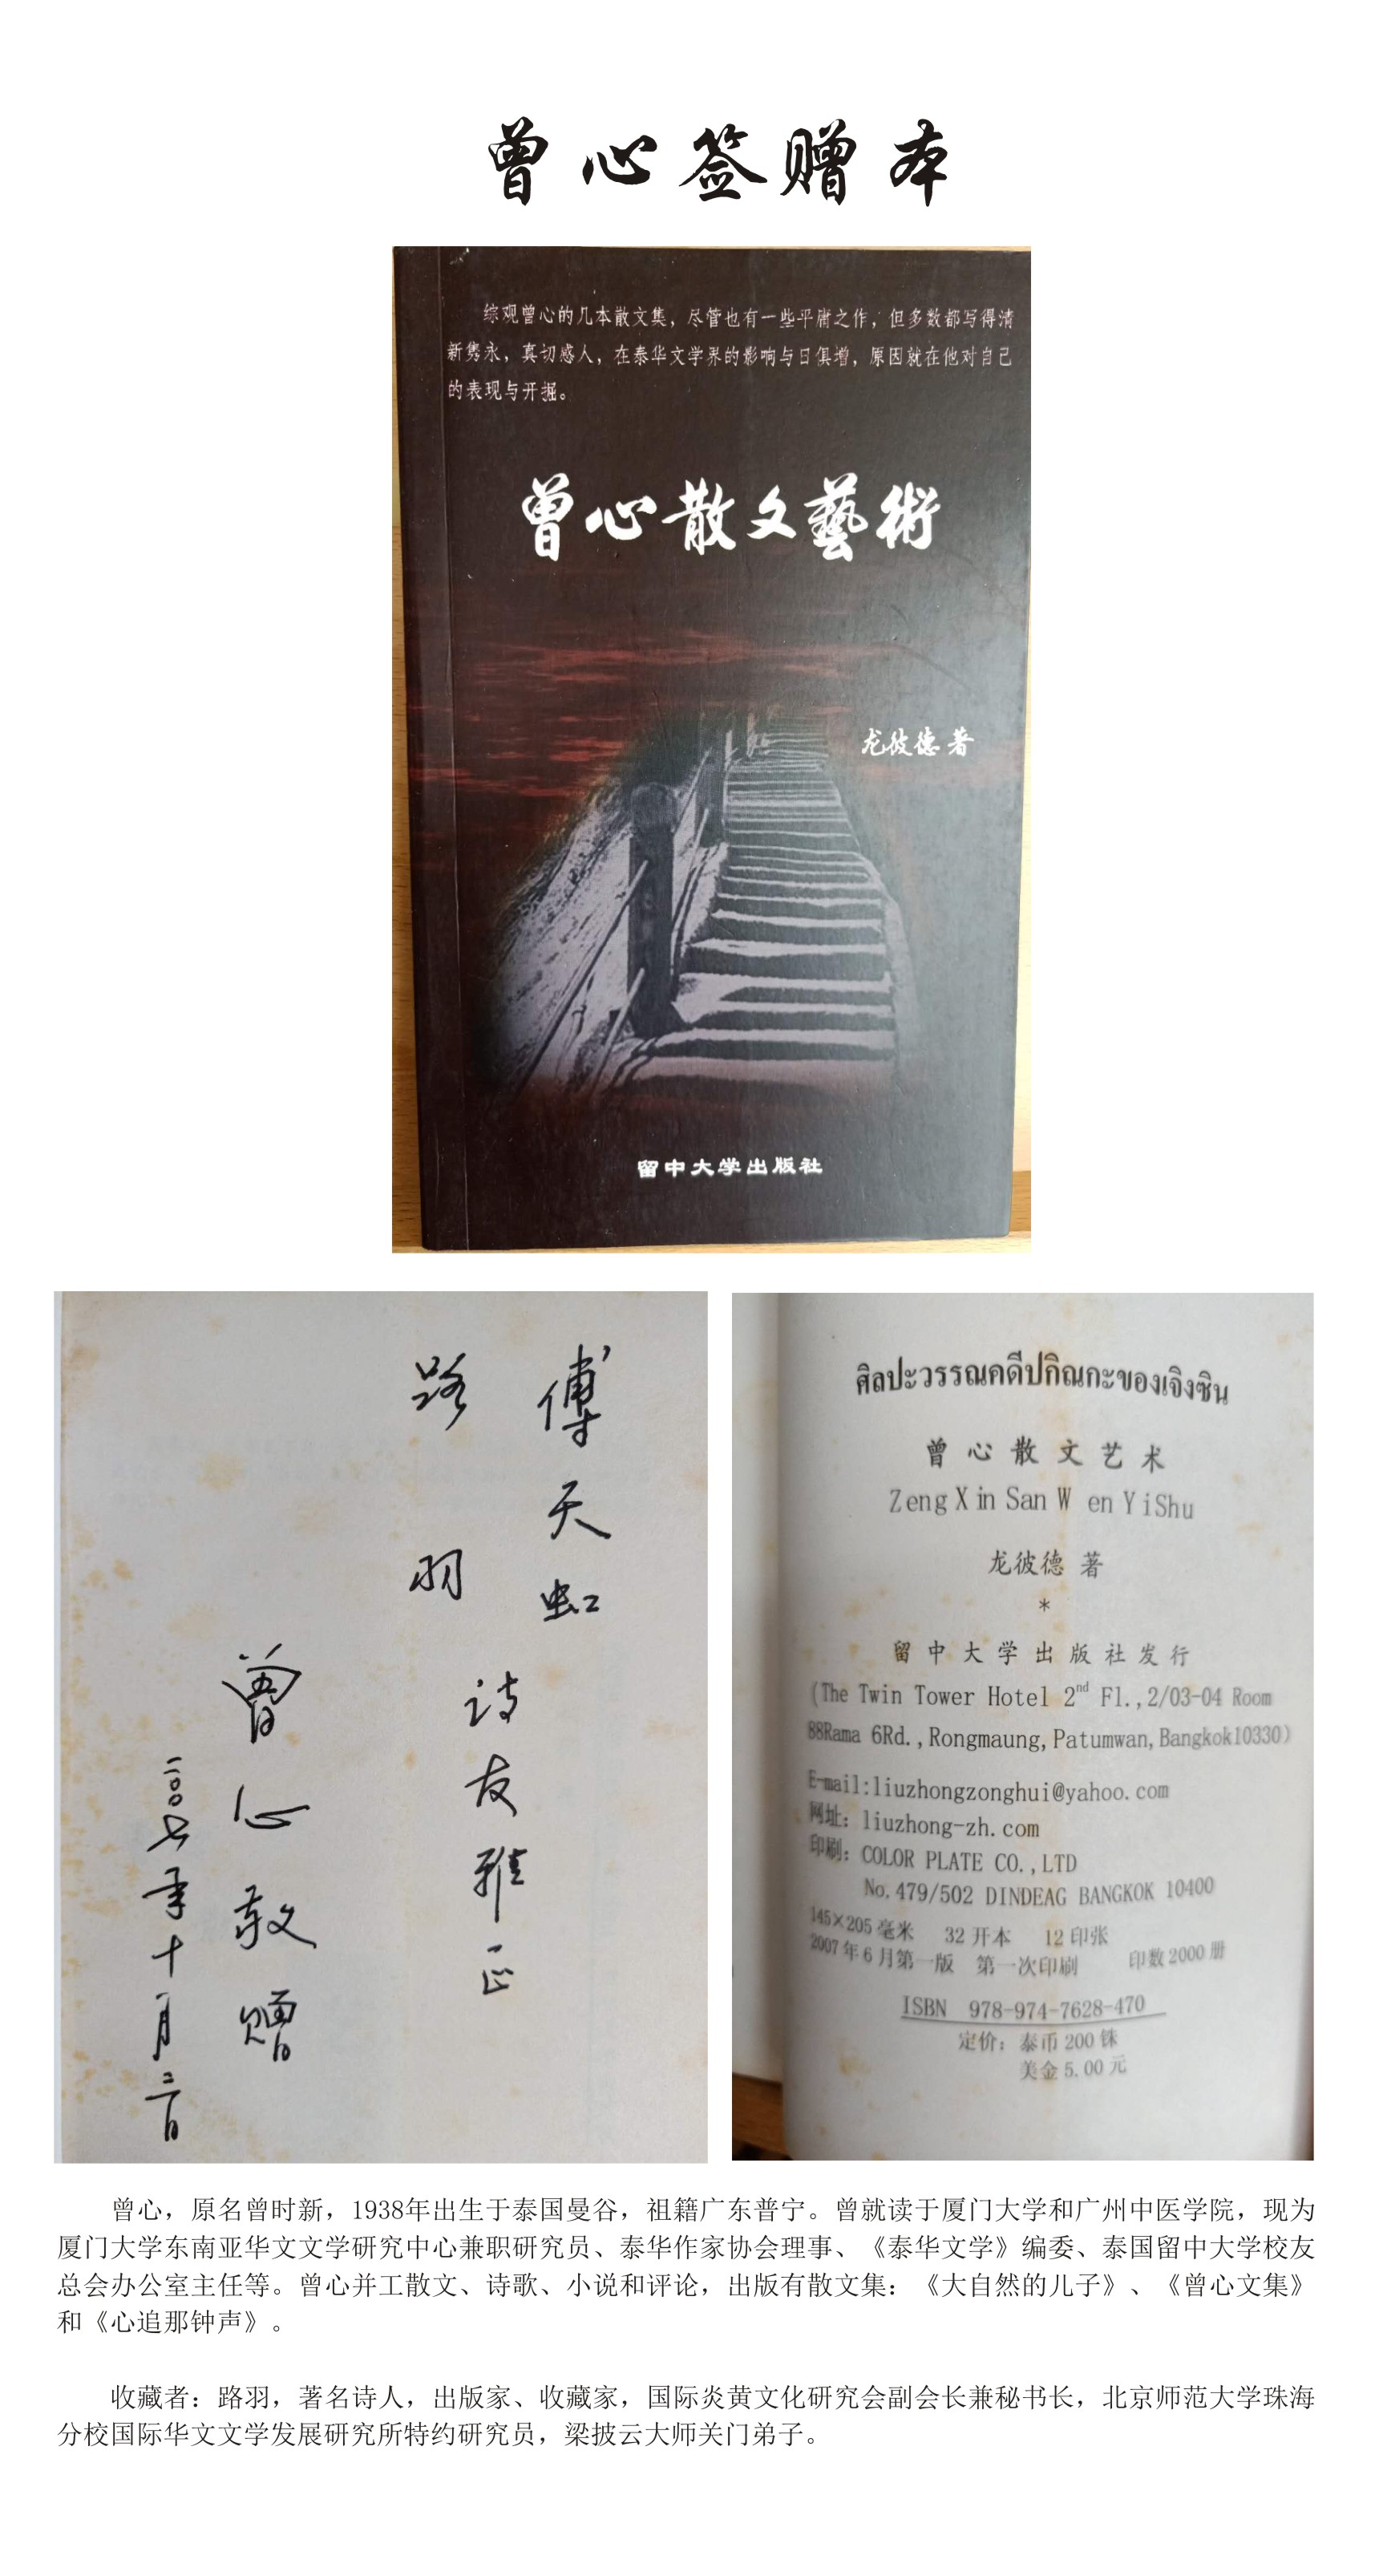 曾心签赠本
综观曾心的几本散文集，尽管也有一些平庸之作，但多数都写得清
新隽永，真切感人，在泰华文学界的影响与日俱增，原因就在他对自己
的表现与开掘。
曾心散文藝術
龙彼德 著
留中大学出版社
傅天虹
路羽
诗友雅正
曾心敬赠
二〇〇七年十月二日
ศิลปะวรรณคดีปกิณกะของเจิงซิน
曾心散文艺术
Zeng Xin San Wen YiShu
龙彼德 著
*
留中大学出版社发行
(The Twin Tower Hotel 2nd Fl.,2/03-04 Room
88Rama 6Rd.,Rongmaung,Patumwan,Bangkok10330)
E-mail:liuzhongzonghui@yahoo.com
网址：liuzhong-zh.com
印刷：COLOR PLATE CO.,LTD
No.479/502 DINDEAG BANGKOK 10400
145×205 毫米 32 开本 12 印张
2007 年 6 月第一版 第一次印刷 印数 2000 册
ISBN 978-974-7628-470
定价：泰币 200 铢
美金 5.00 元
曾心，原名曾时新，1938年出生于泰国曼谷，祖籍广东普宁。曾就读于厦门大学和广州中医学院，现为
厦门大学东南亚华文文学研究中心兼职研究员、泰华作家协会理事、《泰华文学》编委、泰国留中大学校友
总会办公室主任等。曾心并工散文、诗歌、小说和评论，出版有散文集：《大自然的儿子》、《曾心文集》
和《心追那钟声》。
收藏者：路羽，著名诗人，出版家、收藏家，国际炎黄文化研究会副会长兼秘书长，北京师范大学珠海
分校国际华文文学发展研究所特约研究员，梁披云大师关门弟子。